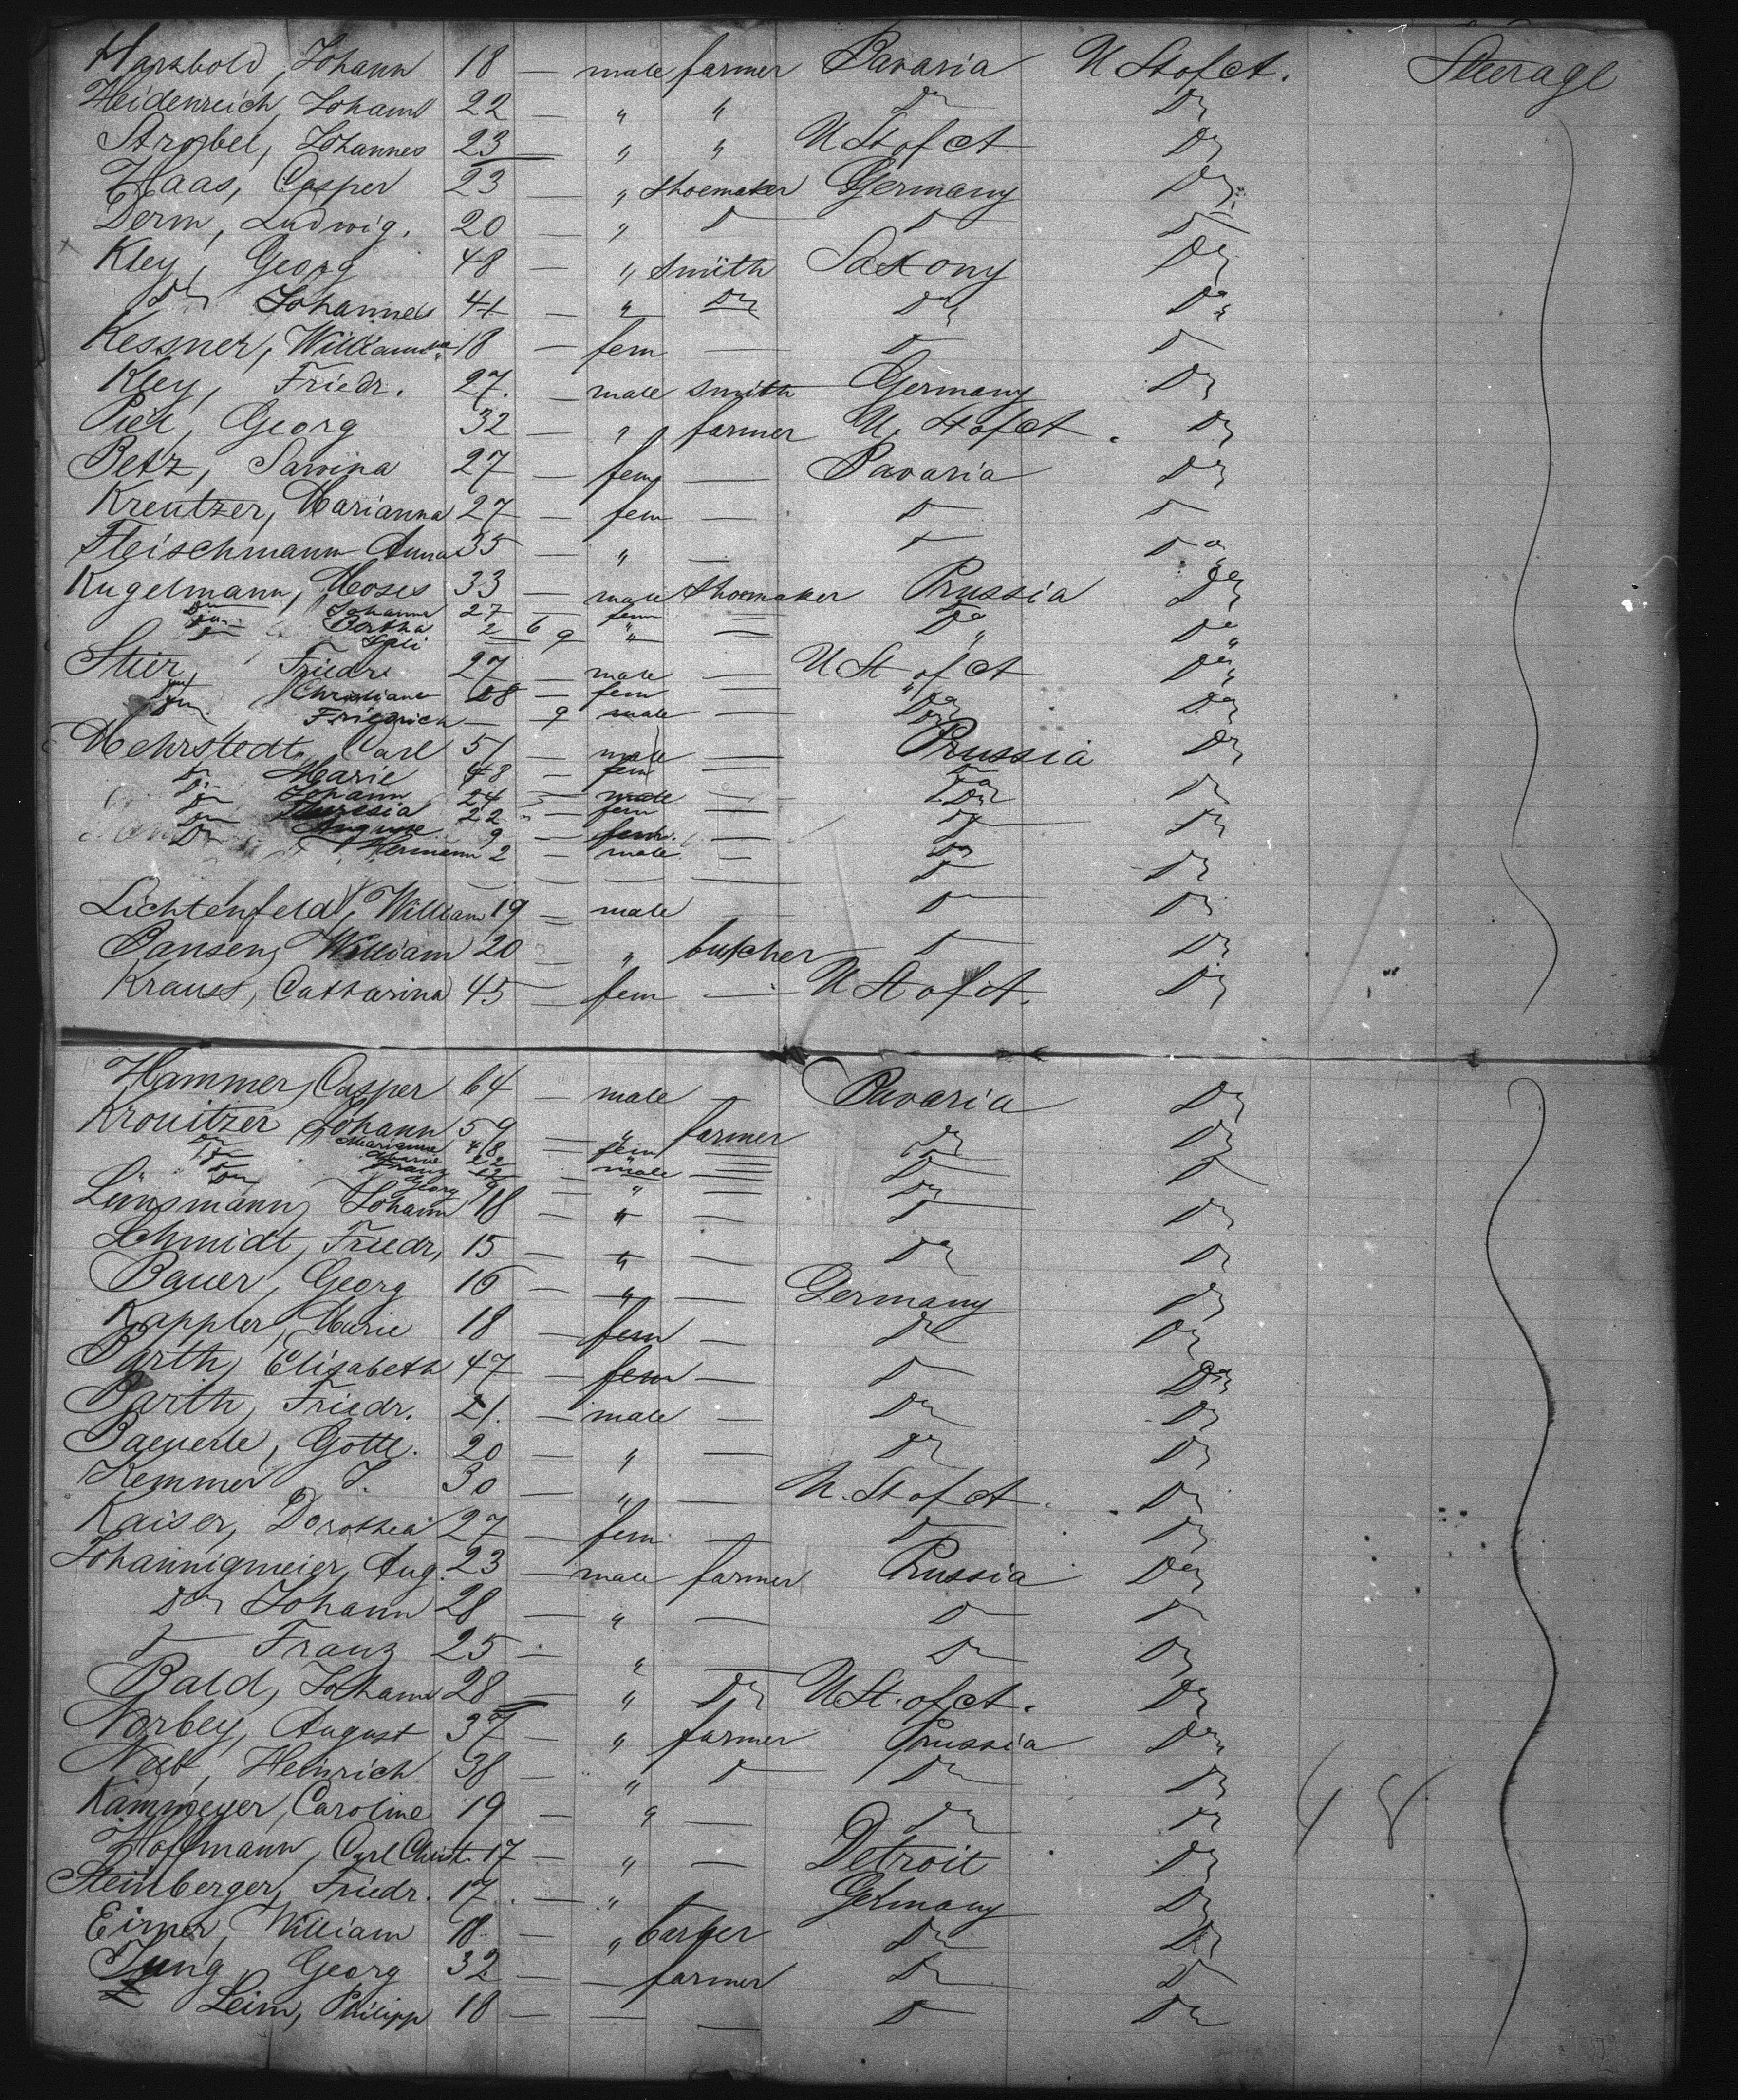 Harsbold, Johann 18 — male farmer Bavaria U St of ct. Steerage
Heidenreich, Johann 22 — " " Do Do
Strobel, Johannes 23 — " " U St of ct Do
Haas, Casper 23 — " shoemaker Germany Do
Derm, Ludwig. 20 — " D D Do
Kley, Georg 48 — " smith Saxony Do
Do Johannes 41 — " Do Do Do
Kessner, 18 — fem — D D
Kley, Friedr. 27. — male smith Germany Do
Georg 32 — " farmer U. St of ct. Do
Betz, 27 — fem — Bavaria Do
Kreutzer, Marianna 27 — fem — D D
Fleischmann Anna 35 — " — D Do
Kugelmann, Moses 33 — male shoemaker Prussia Do
Do Johanna 27 — fem — Do
Do Bertha 2 6 " — Do Do
Do 9
Stier, Friedr. 27 — male — U St of ct Do
Do Christiane 28 — fem — Do
Do Friedrich — 9 male — Do Do
Mehrstedt, Carl 51 — male — Prussia Do
Do Marie 48 — fem — Do
Do Johann 24 — male — Do Do
Do Theresia 22 — fem — Do
Do Auguste 9 — fem — D Do
Do Hermann 2 — male — Do
— — — — D Do
Lichtenfeld, William 19 — male D Do
Jansen, William 20 — " butcher D Do
Krauss, Catharina 45 — fem — U St of ct. Do
Hammer, Casper 64 — male — Bavaria Do
Krouitzer Johann 59 — " farmer Do Do
Do Marianne 48 — fem — Do
Do Marie 22 — " — D D
Do Franz — male —
Do Georg 9 — " — Do
Johann 18 — " — D Do
Schmidt, Friedr, 15 — " — Do Do
Bauer, Georg 16 — " — Germany Do
Kappler, Marie 18 — fem — Do Do
Barth, Elisabeth 47 — fem — D Do
Barth, Friedr. 21. — male — Do Do
Baeuerle, Gottl. 20 — " — Do Do
Kemmer J. 30 — " — U. St of ct. Do
Kaiser, Dorothea 27 — fem — D Do
Johannigmeier, Aug. 23 — male farmer Prussia Do
Do Johann 28 — " — D D
D Franz 25 — " — Do Do
Bald, Johann 28 — " Do U St. of ct. Do
Norbey, August 37 — " farmer Prussia Do
Heinrich 38 — " D Do Do
Kammeyer, Caroline 19 — " — Do Do 48
Hoffmann, Carl Christ. 17 — " — Detroit Do
Steinberger, Friedr. 17. — " Germany Do
William 18 — " barber Do Do
Jung, Georg 32 — — farmer Do D
Leim, Philipp 18 — — — D Do